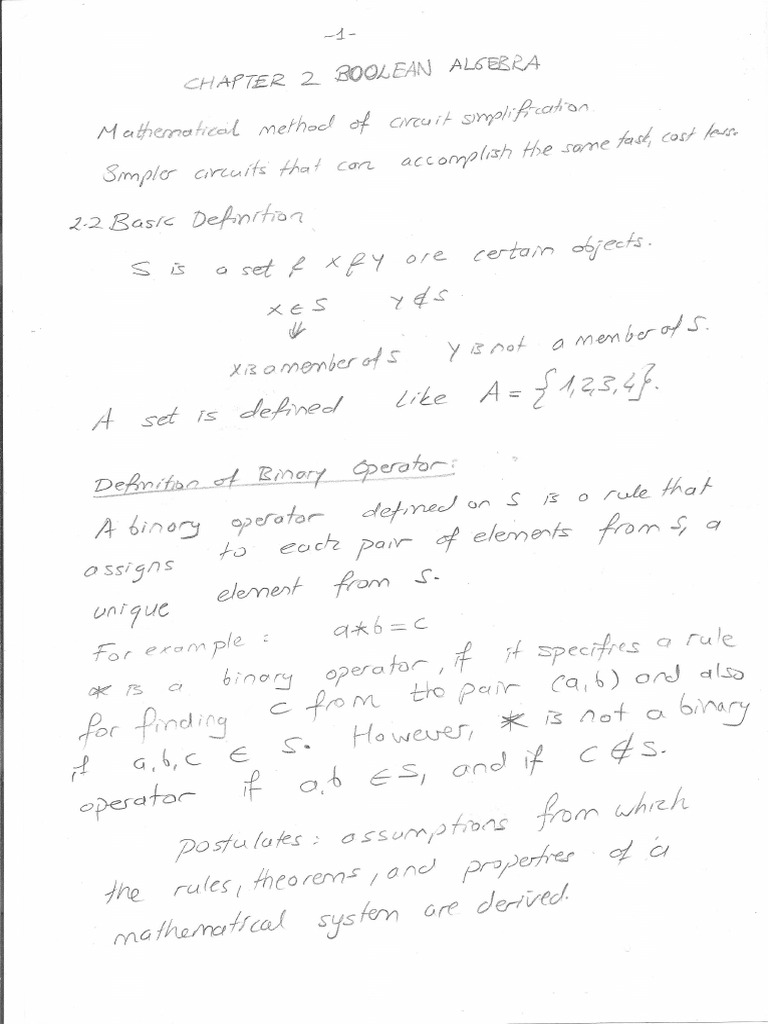 -1-
CHAPTER 2 BOOLEAN ALGEBRA
Mathematical method of circuit simplification
Simpler circuits that can accomplish the same task, cost less.
2-2 Basic Definition
S is a set & x & y are certain objects.
x ∈ S y ∉ S
⇓
x is a member of S y is not a member of S.
A set is defined like A = {1,2,3,4}.
Definition of Binary Operator:
A binary operator defined on S is a rule that
assigns to each pair of elements from S, a
unique element from S.
For example: a*b=c
* is a binary operator, if it specifies a rule
for finding c from the pair (a,b) and also
if a,b,c ∈ S. However, * is not a binary
operator if a,b ∈ S, and if c ∉ S.
postulates: assumptions from which
the rules, theorems, and properties of a
mathematical system are derived.